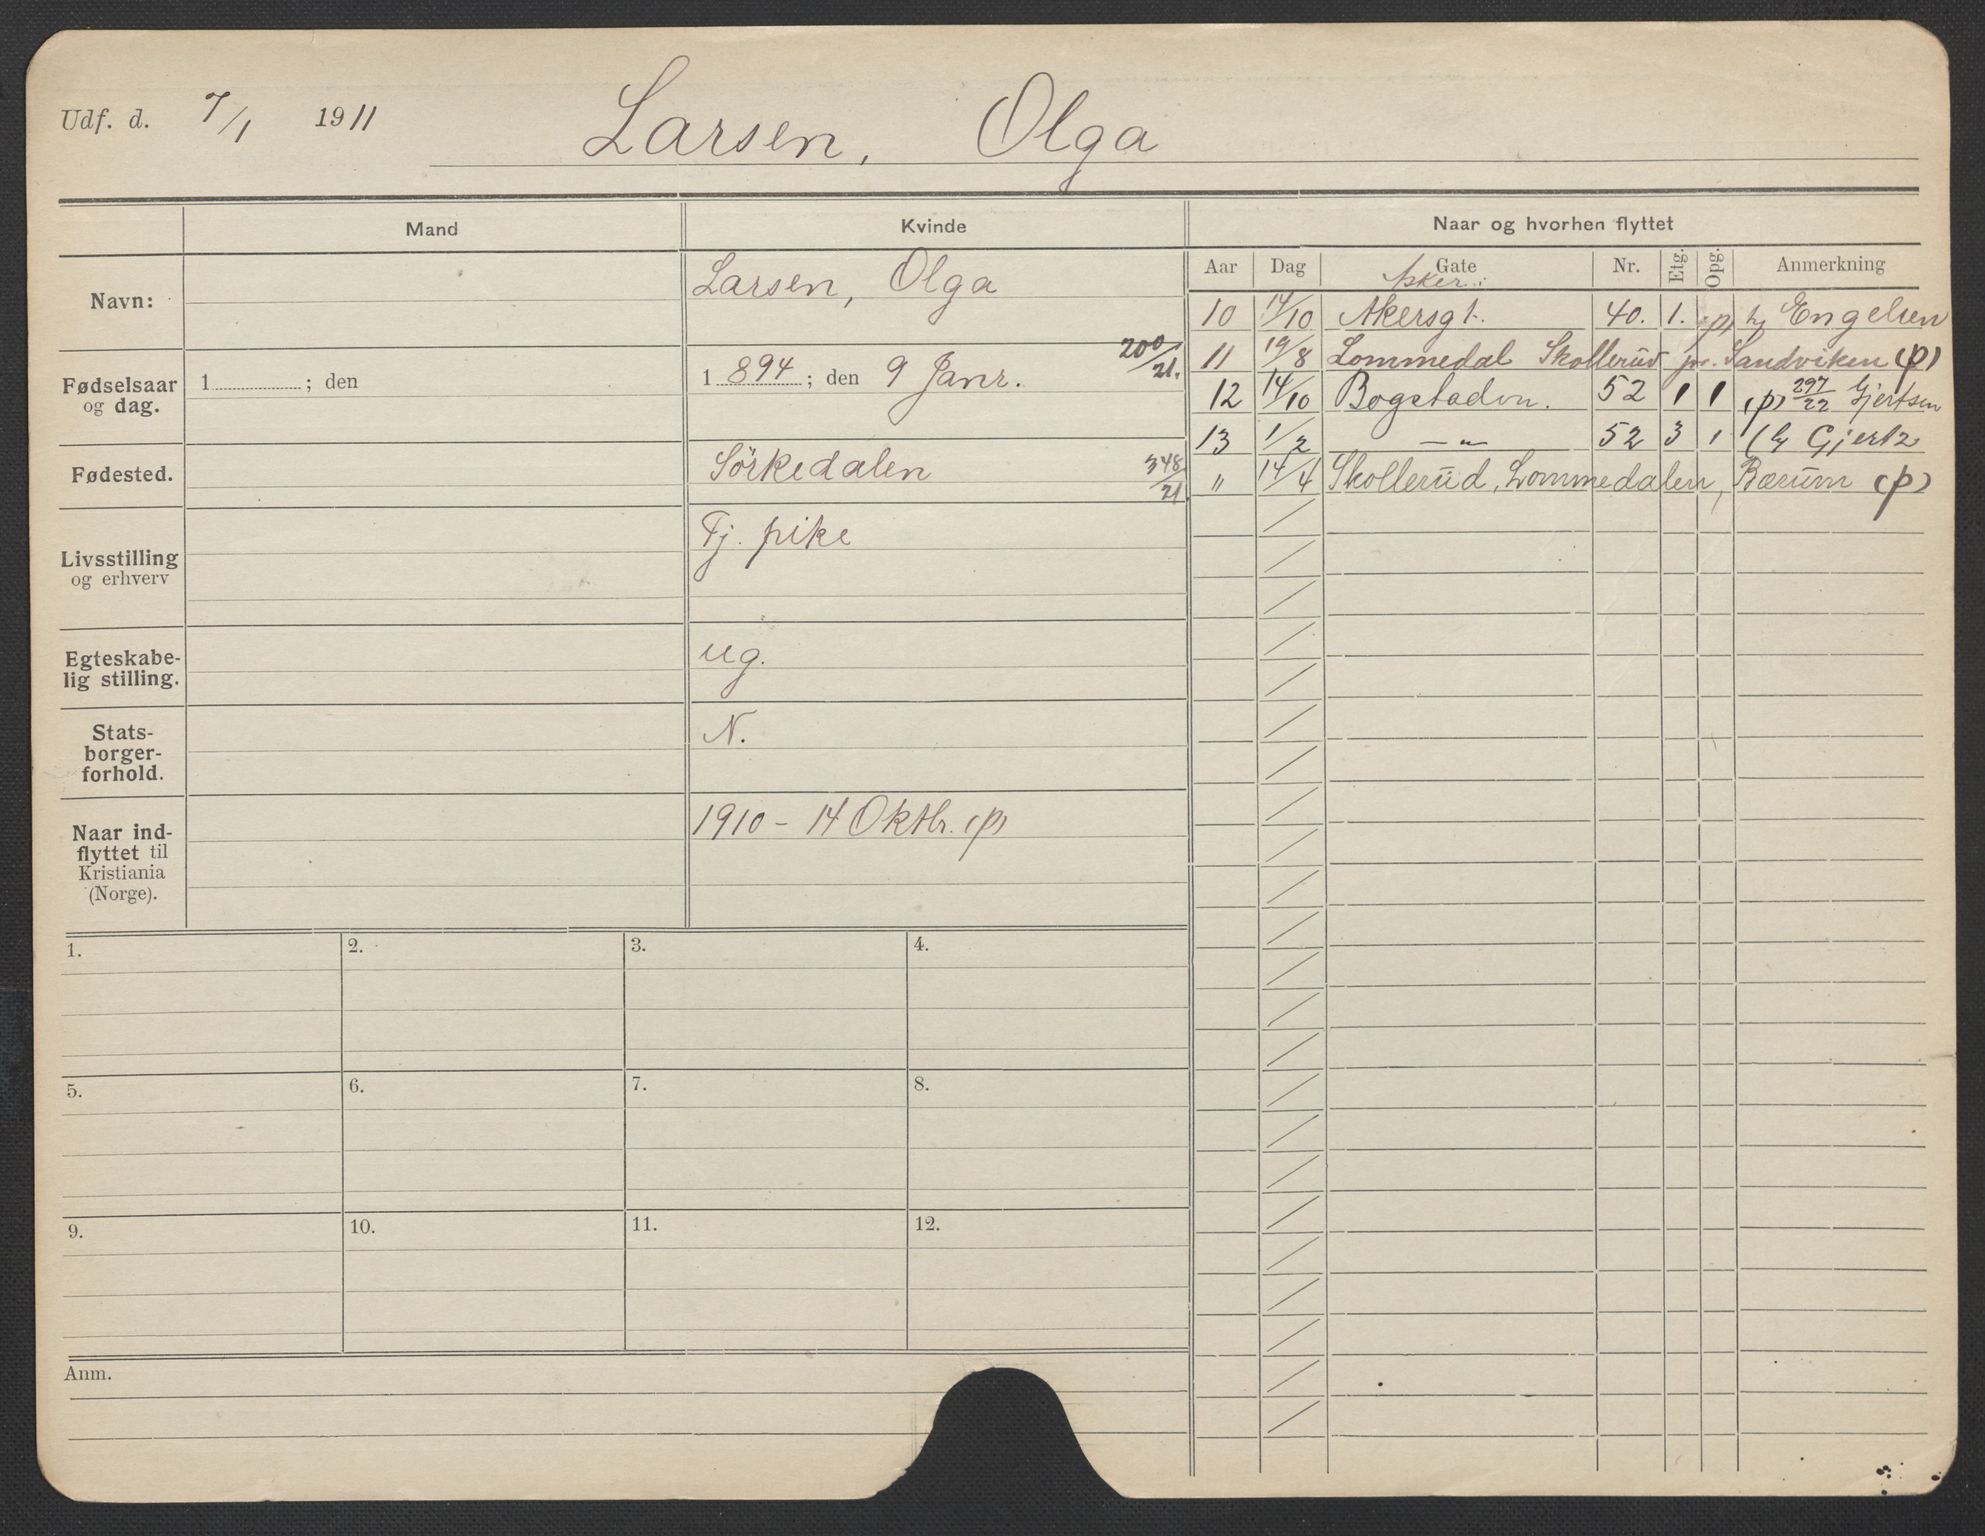 Udf. d. 7/1 1911 Larsen, Olga
Mand Kvinde Naar og hvorhen flyttet
Aar Dag Gate Nr. Etg. Opg. Anmerkning
Navn: Larsen, Olga
Asker:
10 14/10 Akersgt. 40. 1. (p) hj Engelsen
11 19/8 Lommedal Skollerud pr. Sandviken (p)
12 14/10 Bogstadvn. 52 1 1 (p) 297/22 Gjertsen
13 1/2 —"— 52 3 1 (hj Gjertz
" 14/4 Skollerud, Lommedalen, Bærum (p)
Fødselsaar og dag. 1 ; den 1 894 ; den 9 Janr. 200/21.
Fødested. Sörkedalen 348/21
Livsstilling og erhverv Tj. pike
Egteskabe-
lig stilling. ug.
Stats-
borger-
forhold. N.
Naar ind-
flyttet til
Kristiania
(Norge). 1910 - 14 Oktbr. (p)
1. 2. 3. 4.
5. 6. 7. 8.
9. 10. 11. 12.
Anm.